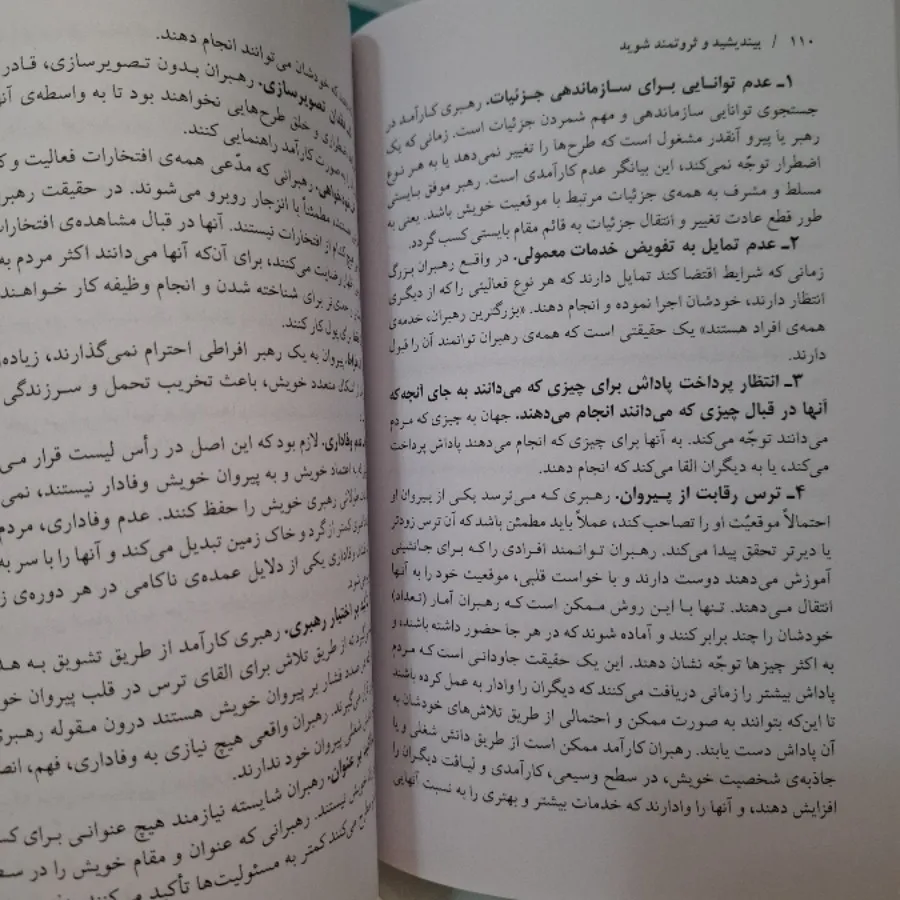 ۱۱۰ / بیندیشید و ثروتمند شوید
۱ـ عدم توانایی برای سازماندهی جزئیات. رهبری کارآمد در
جستجوی توانایی سازماندهی و مهم شمردن جزئیات است. زمانی که یک
رهبر یا پیرو آنقدر مشغول است که طرح‌ها را تغییر نمی‌دهد یا به هر نوع
اضطرار توجّه نمی‌کند، این بیانگر عدم کارآمدی است. رهبر موفق بایستی
مسلط و مشرف به همه‌ی جزئیات مرتبط با موقعیت خویش باشد. یعنی به
طور قطع عادت تغییر و انتقال جزئیات به قائم مقام بایستی کسب گردد.
۲ـ عدم تمایل به تفویض خدمات معمولی. در واقع رهبران بزرگ
زمانی که شرایط اقتضا کند تمایل دارند که هر نوع فعالیتی را که از دیگری
انتظار دارند، خودشان اجرا نموده و انجام دهند. «بزرگترین رهبران، خدمه‌ی
همه‌ی افراد هستند» یک حقیقتی است که همه‌ی رهبران توانمند آن را قبول
دارند.
۳ـ انتظار پرداخت پاداش برای چیزی که می‌دانند به جای آنچه‌که
آنها در قبال چیزی که می‌دانند انجام می‌دهند. جهان به چیزی که مردم
می‌دانند توجّه می‌کند. به آنها برای چیزی که انجام می‌دهند پاداش پرداخت
می‌کند، یا به دیگران القا می‌کند که انجام دهند.
۴ـ ترس رقابت از پیروان. رهبری که می‌ترسد یکی از پیروان او
احتمالاً موقعیّت او را تصاحب کند، عملاً باید مطمئن باشد که آن ترس زودتر
یا دیرتر تحقق پیدا می‌کند. رهبران توانمند افرادی را که برای جانشینی
آموزش می‌دهند دوست دارند و با خواست قلبی، موقعیت خود را به آنها
انتقال می‌دهند. تنها با این روش ممکن است که رهبران آمار (تعداد)
خودشان را چند برابر کنند و آماده شوند که در هر جا حضور داشته باشند، و
به اکثر چیزها توجّه نشان دهند. این یک حقیقت جاودانی است که مردم
پاداش بیشتر را زمانی دریافت می‌کنند که دیگران را وادار به عمل کرده باشند
تا این‌که بتوانند به صورت ممکن و احتمالی از طریق تلاش‌های خودشان به
آن پاداش دست یابند. رهبران کارآمد ممکن است از طریق دانش شغلی و یا
جاذبه‌ی شخصیت خویش، در سطح وسیعی، کارآمدی و لیاقت دیگران را
افزایش دهند، و آنها را وادارند که خدمات بیشتر و بهتری را به نسبت آنهایی
که خودشان می‌توانند انجام دهند.
تصویرسازی. رهبران بدون تصویرسازی، قادر
و خلق طرح‌هایی نخواهند بود تا به واسطه‌ی
صورت کارآمد راهنمایی کنند.
رهبرانی که مدّعی همه‌ی افتخارات فعالیت و
مطمئناً با انزجار روبرو می‌شوند. در حقیقت
از افتخارات نیستند. آنها در قبال مشاهده‌ی
رضایت می‌کنند، برای آن‌که آنها می‌دانند اکثر مردم به
برای شناخته شدن و انجام وظیفه کار
پول کار کنند.
پیروان به یک رهبر افراطی احترام نمی‌گذارند،
متعدد خویش، باعث تخریب تحمل و سرزندگی
وفاداری. لازم بود که این اصل در رأس لیست قرار
اعتماد خویش و به پیروان خویش وفادار نیستند،
رهبری خویش را حفظ کنند. عدم وفاداری، مردم
کمتر از گرد و خاک زمین تبدیل می‌کند و آنها را با سر به
وفاداری یکی از دلایل عمده‌ی ناکامی در هر دوره‌ی
بر اختیار رهبری. رهبری کارآمد از طریق تشویق به
از طریق تلاش برای القای ترس در قلب پیروان
صدد فشار بر پیروان خویش هستند درون مقوله
رهبران واقعی هیچ نیازی به وفاداری، فهم،
شغلی پیروان خود ندارند.
بر عنوان. رهبران شایسته نیازمند هیچ عنوانی برای
خویش نیستند. رهبرانی که عنوان و مقام خویش را در
می‌کنند کمتر به مسئولیت‌ها تأکید